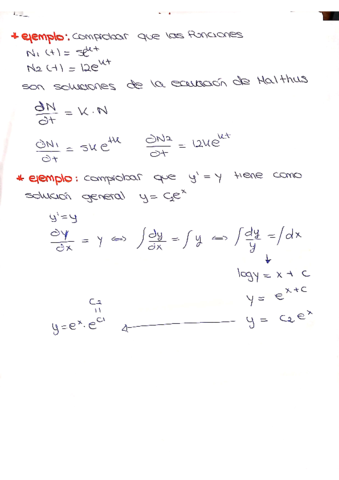 * ejemplo: comprobar que las funciones
N₁ (t) = 5e^kt
N₂ (t) = 12e^kt
son soluciones de la ecuación de Malthus
∂N/∂t = K · N
∂N₁/∂t = 5Ke^tk ∂N₂/∂t = 12Ke^kt
* ejemplo: comprobar que y' = y tiene como
solución general y = C₂e^x
y' = y
∂y/∂x = y ⇔ ∫dy/∂x = ∫y ⇔ ∫dy/y = ∫dx
↓
log y = x + C
y = e^x+C
y = C₂e^x
C₂
=
y = e^x · e^C₁ ←